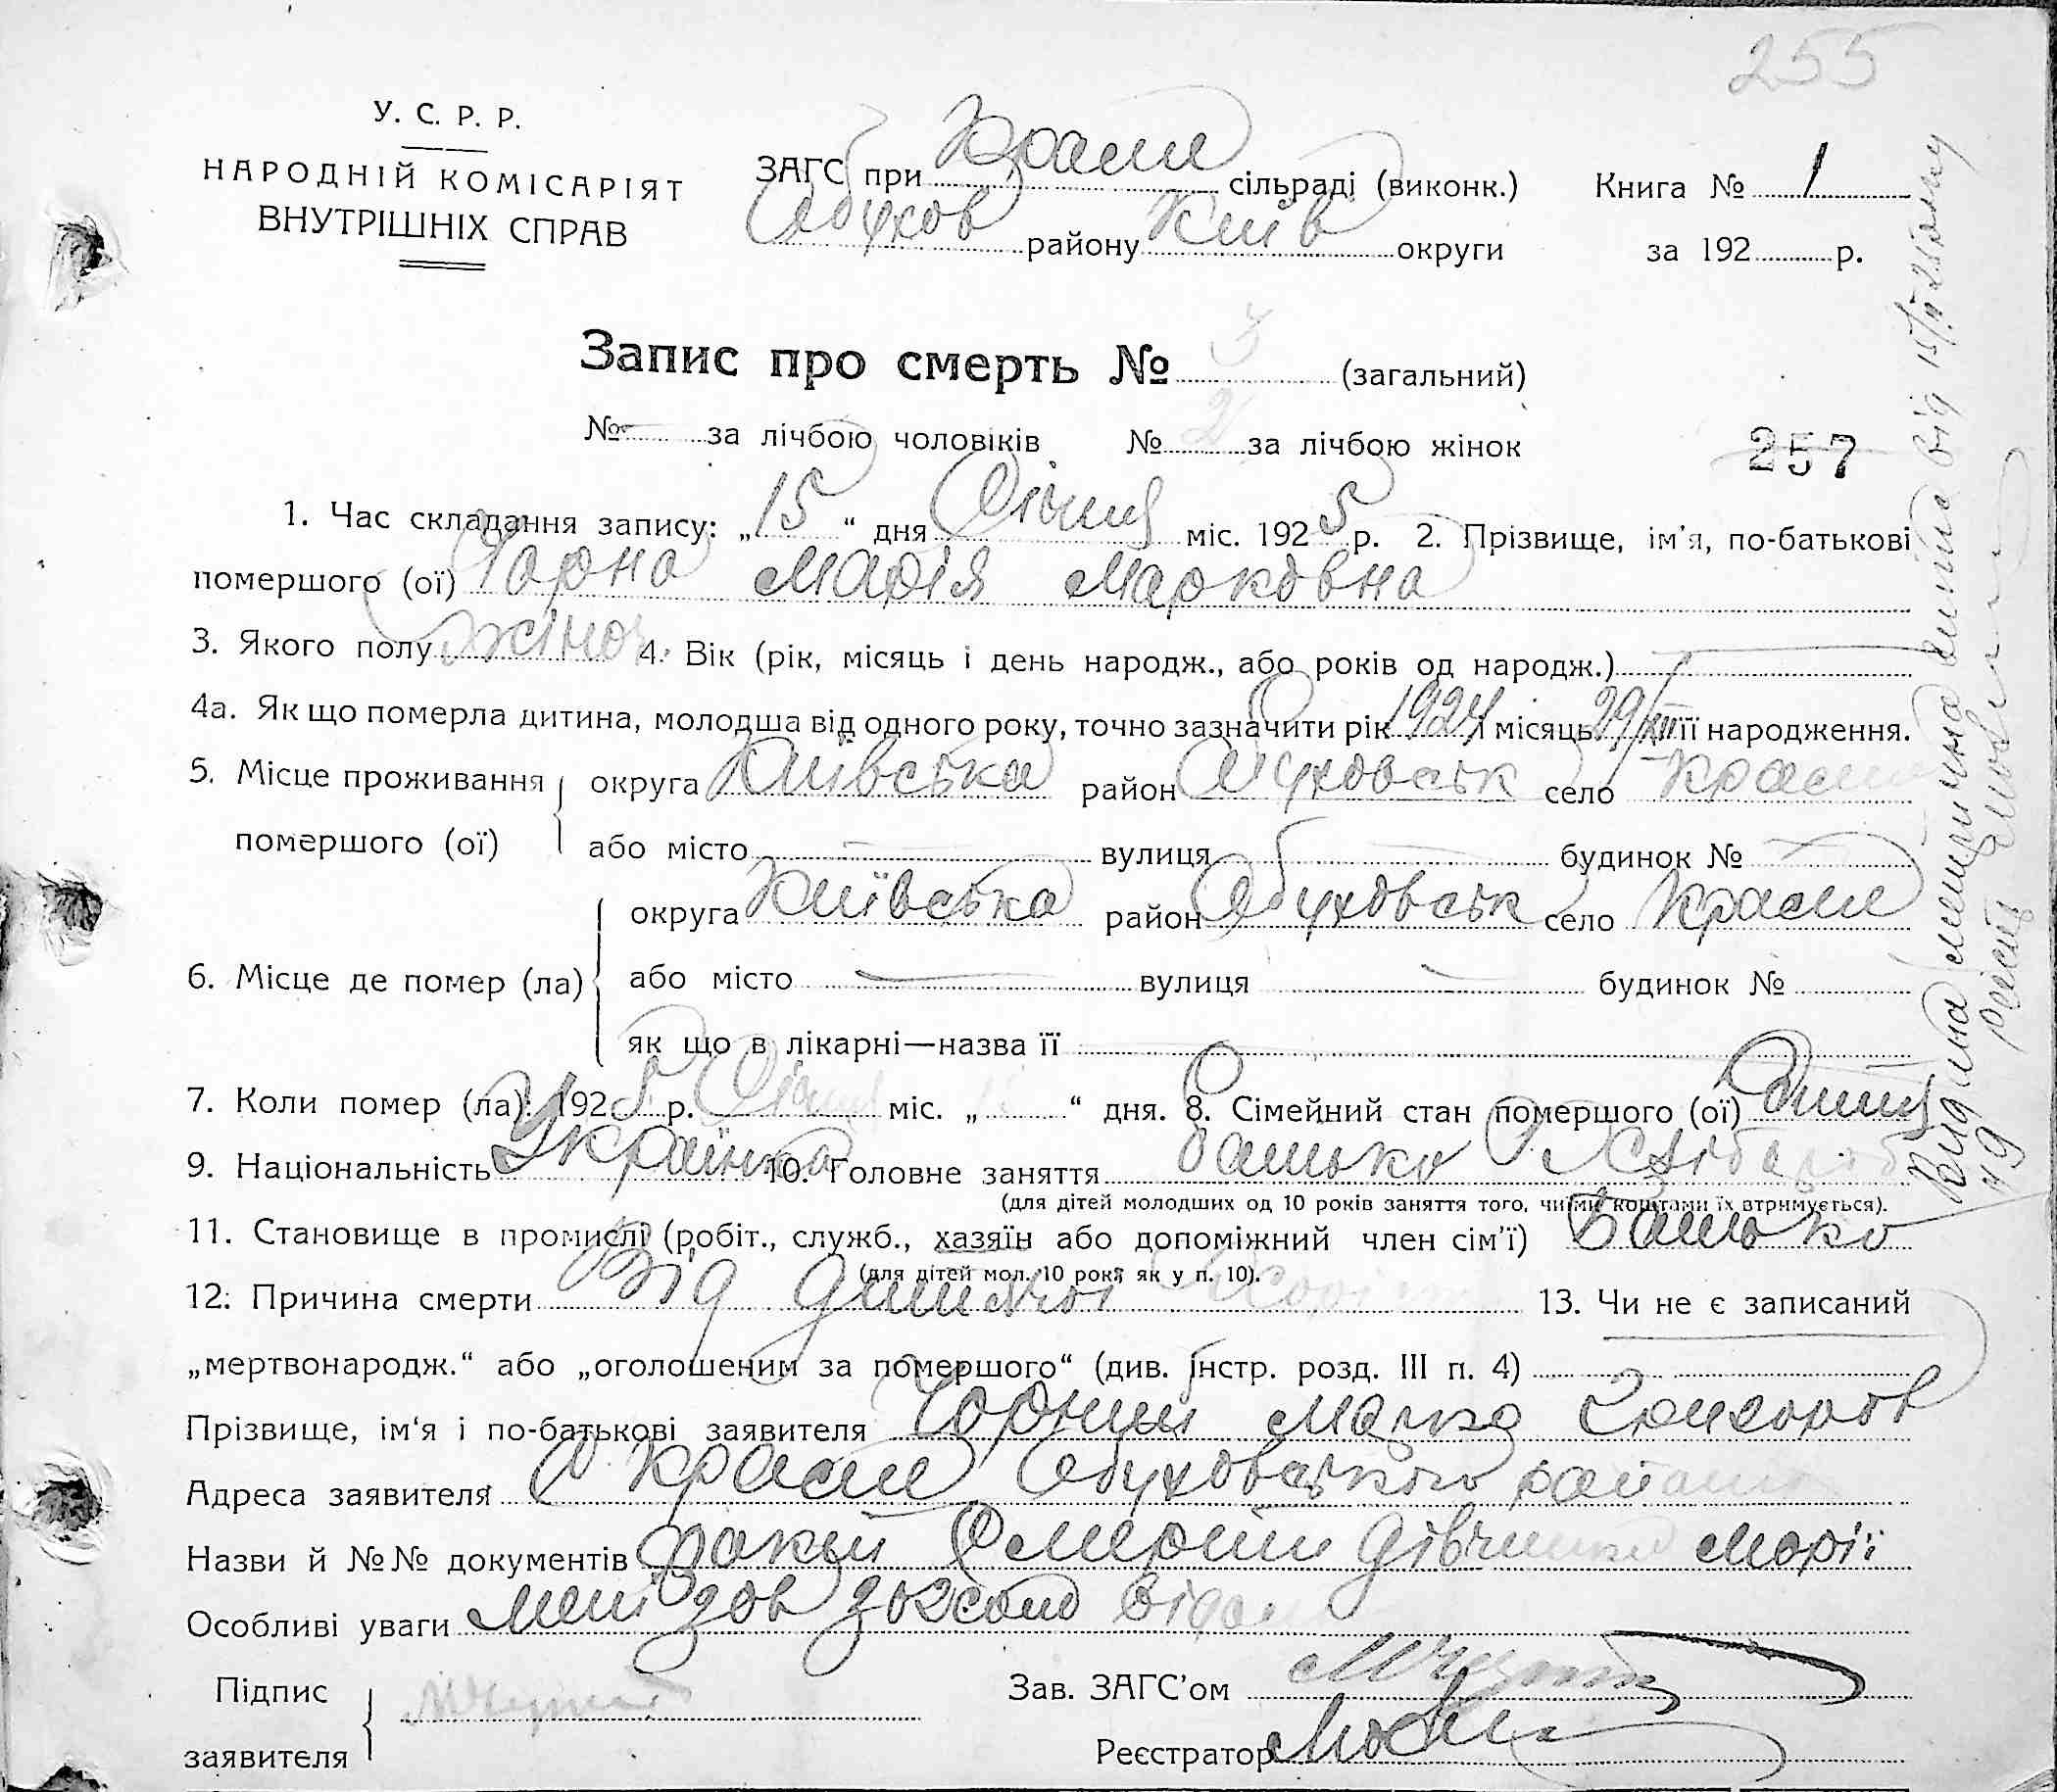 255
У. С. Р. Р.
НАРОДНІЙ КОМІСАРІЯТ
ВНУТРІШНІХ СПРАВ
ЗАГС при Краси сільраді (виконк.)
Обухов району Київ округи
Книга № 1
за 192 р.
Запис про смерть № 3 (загальний)
№ — за лічбою чоловіків № 2 за лічбою жінок
257
1. Час складання запису: „15“ дня Січня міс. 1925 р. 2. Прізвище, ім'я, по-батькові
помершого (ої) Чорна Марія Марковна
3. Якого полу жіноч 4. Вік (рік, місяць і день народж., або років од народж.) —
4а. Як що померла дитина, молодша від одного року, точно зазначити рік 1924 і місяць 29/XII її народження.
5. Місце проживання помершого (ої) округа Київська район Обуховськ село Краси
або місто — вулиця — будинок № —
6. Місце де помер (ла) округа Київська район Обуховськ село Краси
або місто — вулиця — будинок №
як що в лікарні—назва її
7. Коли помер (ла): 1925 р. Січня міс. „ “ дня. 8. Сімейний стан помершого (ої) Дитя
9. Національність Українка 10. Головне заняття батько Хлібороб
(для дітей молодших од 10 років заняття того, чиїми коштами їх втримується).
11. Становище в промислі (робіт., служб., хазяїн або допоміжний член сім'ї) Батько
(для дітей мол. 10 рокі, як у п. 10).
12. Причина смерти Від дитячої 13. Чи не є записаний
„мертвонародж.“ або „оголошеним за помершого“ (див. Інстр. розд. III п. 4)
Прізвище, ім'я і по-батькові заявителя Чорний Марко
Адреса заявителя С Краси Обуховського району
Назви й №№ документів факт Смерти дівчинки Марії
Особливі уваги
Підпис заявителя
Зав. ЗАГС'ом
Реєстратор